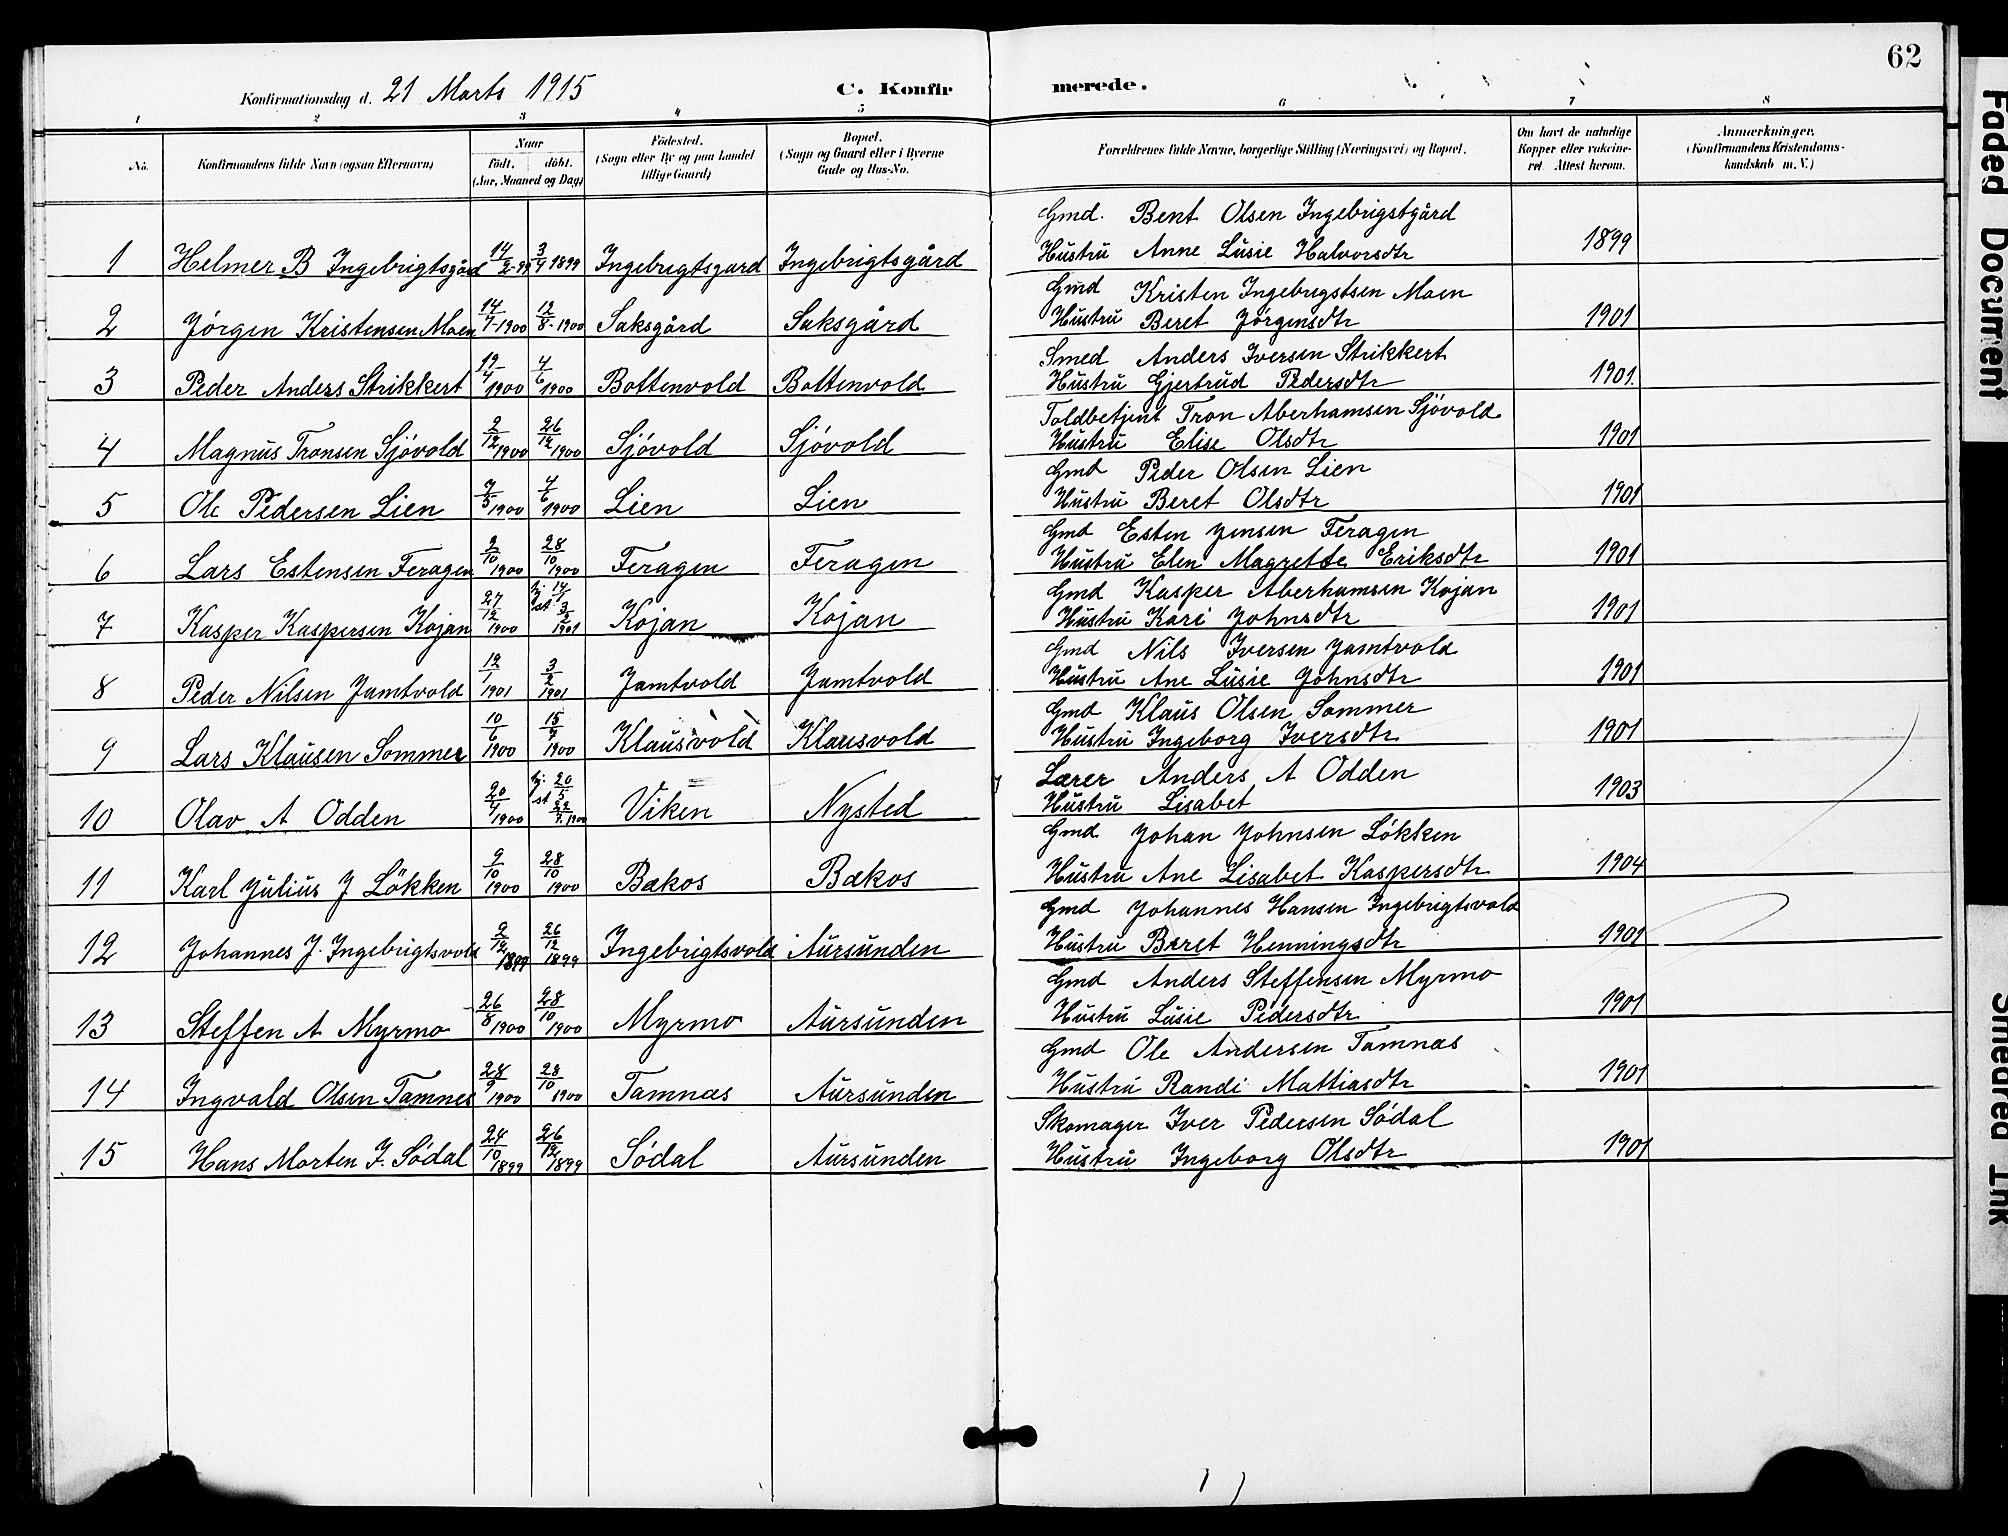 62
Konfirmationsdag d. 21 Marts 1915 C. Konfirmerede.
1 2 3 4 5 6 7 8
No. Konfirmandens fulde Navn (ogsaa Efternavn) Naar født. døbt. (Aar, Maaned og Dag) Fødested. (Sogn eller By og paa Landet tillige Gaard) Bopæl. (Sogn og Gaard eller i Byerne Gade og Hus-No. Forældrenes fulde Navne, borgerlige Stilling (Næringsvei) og Bopæl. Om havt de naturlige Kopper eller vaccineret. Attest herom. Anmærkninger. (Konfirmandens Kristendomskundskab m. V.)
Gmd. Bent Olsen Ingebrigstgård
1 Helmer B Ingebrigtsgård 14/2-99 3/4 1899 Ingebrigtsgard Ingebrigtsgård Hustru Anne Lusie Halvorsdtr 1899
Gmd Kristen Ingebrigstsen Moen
2 Jørgen Kristensen Moen 14/7-1900 12/8-1900 Saksgård Saksgård Hustru Beret Jørgensdtr 1901
Smed Anders Iversen Strikkert
3 Peder Anders Strikkert 19/4 1900 4/6 1900 Bottenvold Bottenvold Hustru Gjertrud Pedersdtr 1901
Toldbetjent Tron Aberhamsen Sjövold
4 Magnus Tronsen Sjövold 2/12 1900 26/12 1900 Sjövold Sjövold Hustru Elise Olsdtr 1901
Gmd Peder Olsen Lien
5 Ole Pedersen Lien 7/5 1900 4/6 1900 Lien Lien Hustru Beret Olsdtr 1901
Gmd Esten Jensen Feragen
6 Lars Estensen Feragen 2/10 1900 28/10 1900 Feragen Feragen Hustru Elen Magrette Eriksdtr 1901
Gmd Kasper Aberhamsen Kojan
7 Kasper Kaspersen Kojan 27/12 1900 hj. 14/1 st 3/2 1901 Kojan Kojan Hustru Kari Johnsdtr 1901
Gmd Nils Iversen Jamtvold
8 Peder Nilsen Jamtvold 12/1 1901 3/2 1901 Jamtvold Jamtvold Hustru Ane Lusie Johnsdtr 1901
Gmd Klaus Olsen Sommer
9 Lars Klausen Sommer 10/6 1900 15/7 1900 Klausvold Klausvold Hustru Ingeborg Iversdtr 1901
Lærer Anders A Odden
10 Olav A Odden 20/4 1900 hj. 20/5 st 22/7 1900 Viken Nysted Hustru Lisabet 1903
Gmd Johan Johnsen Lökken
11 Karl Julius J Lökken 9/10 1900 28/10 1900 Bækos Bækos Hustru Ane Lisabet Kaspersdtr 1904
Gmd Johannes Hansen Ingebrigtsvold
12 Johannes J. Ingebrigtsvold 9/12 1899 26/12 1899 Ingebrigtsvold Aursunden Hustru Beret Henningsdtr 1901
Gmd Anders Steffensen Myrmo
13 Steffen A Myrmo 26/8 1900 28/10 1900 Myrmo Aursunden Hustru Lusie Pedersdtr 1901
Gmd Ole Andersen Tamnæs
14 Ingvald Olsen Tamnes 28/9 1900 28/10 1900 Tamnæs Aursunden Hustru Randi Mattiasdtr 1901
Skomager Iver Pedersen Södal
15 Hans Morten I. Södal 24/10 1899 26/12 1899 Södal Aursunden Hustru Ingeborg Olsdtr 1901
Faded Document
Smeared Ink